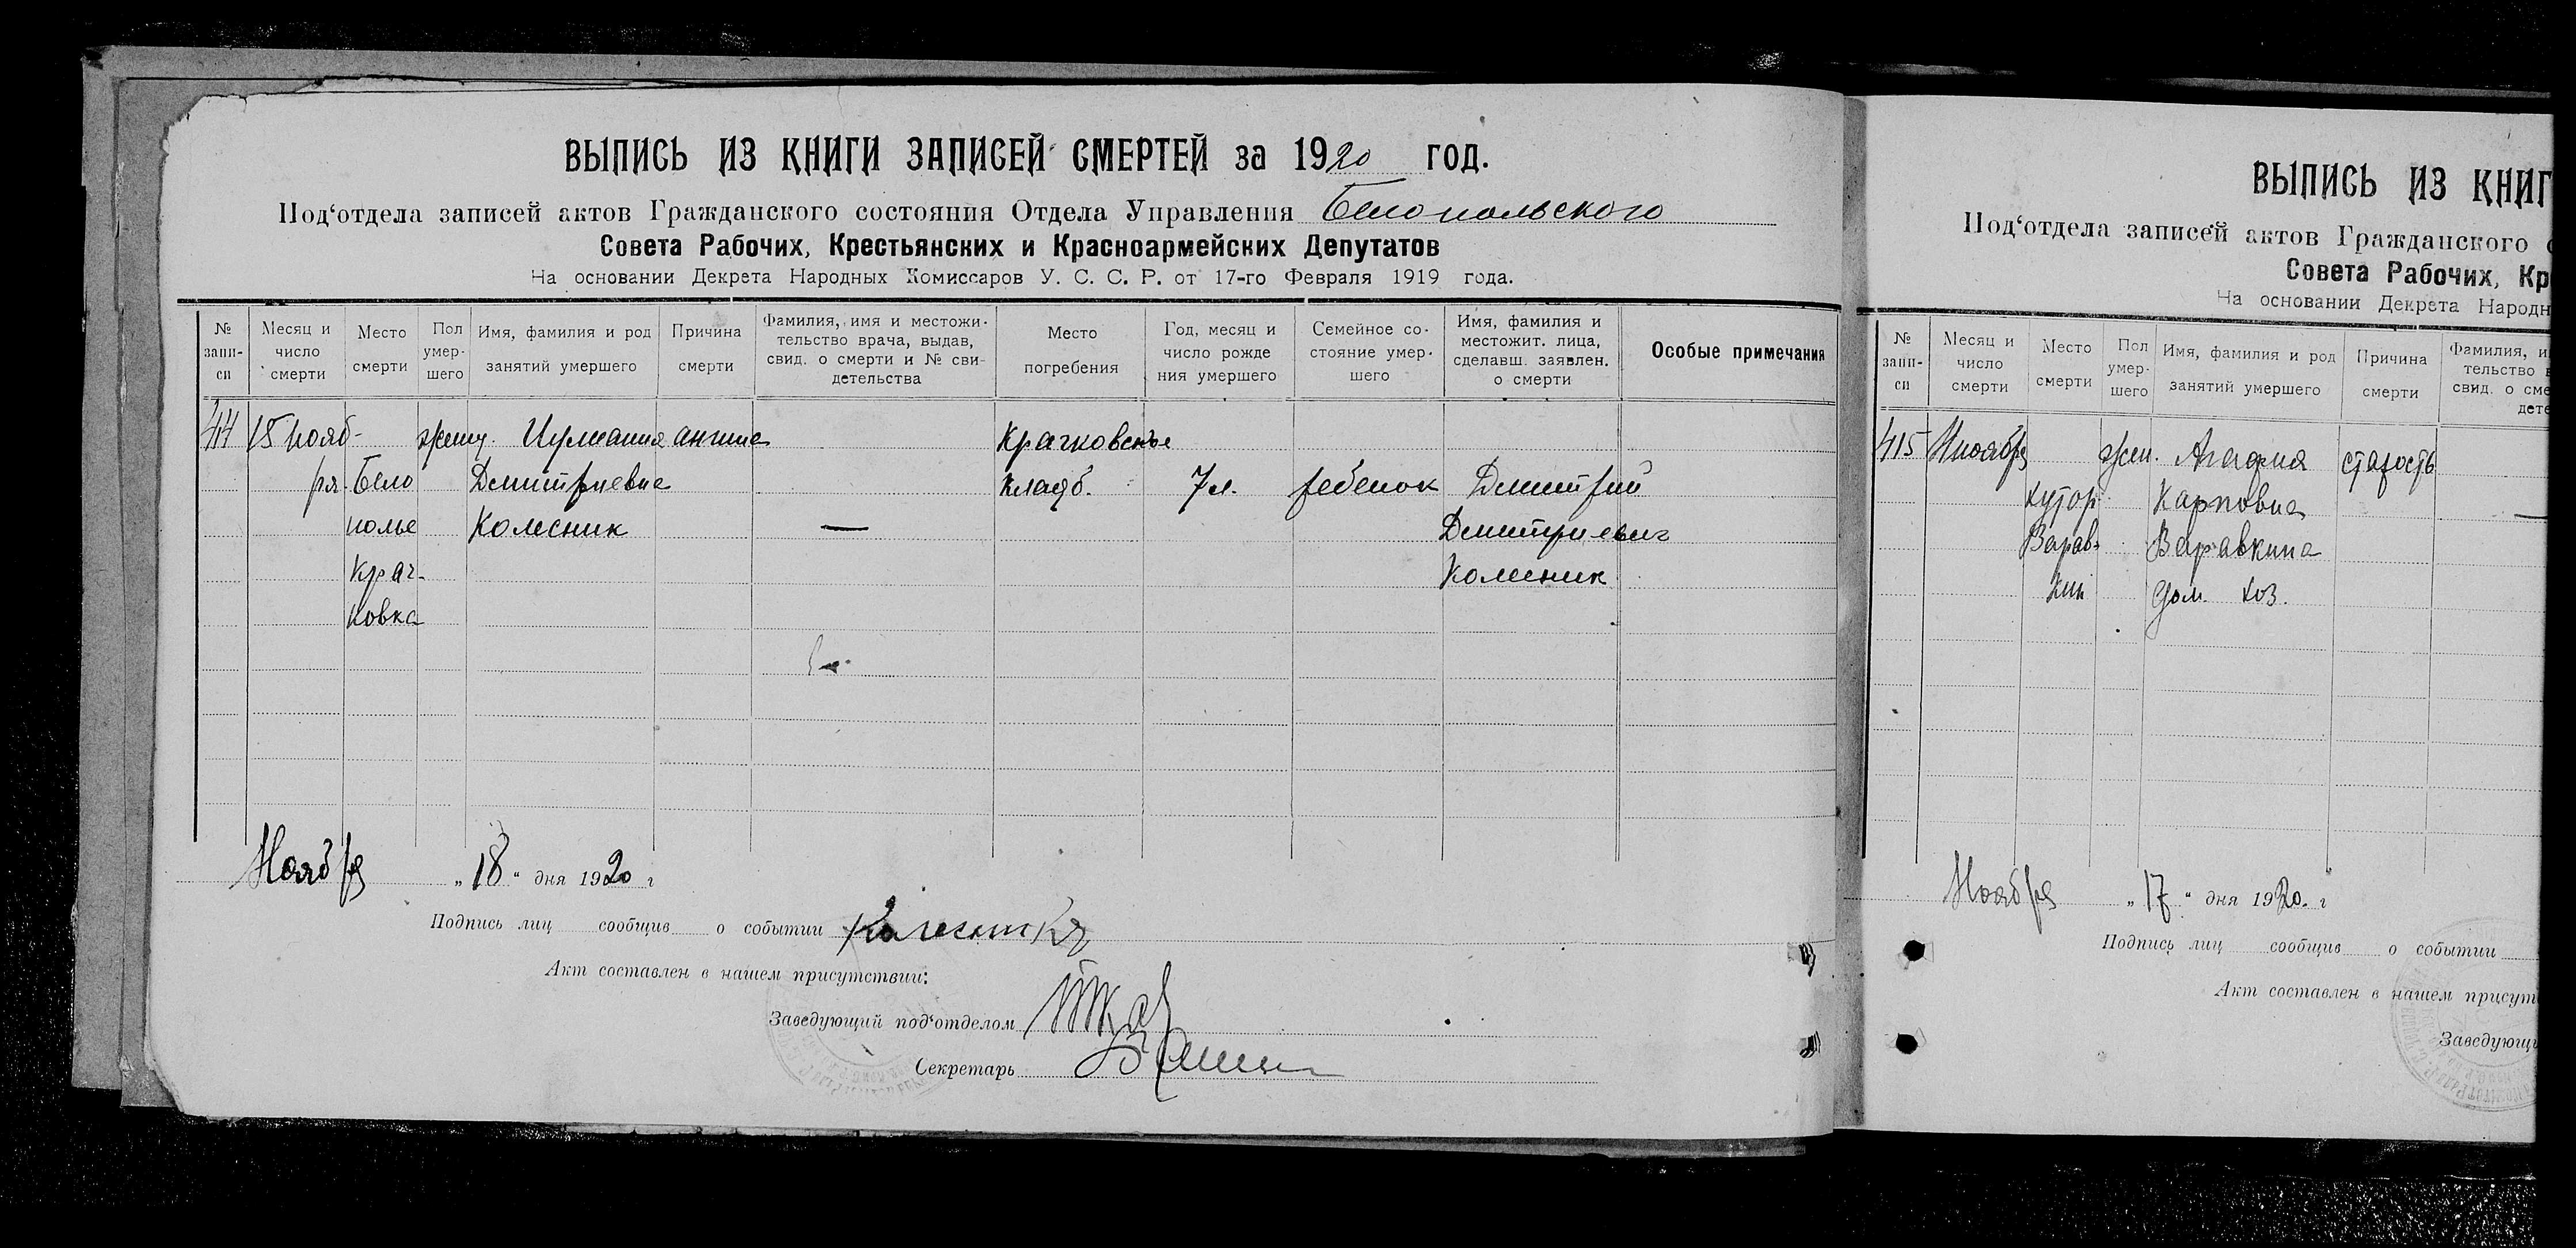 ВЫПИСЬ ИЗ КНИГИ ЗАПИСЕЙ СМЕРТЕЙ за 1920 год.
Под‘отдела записей актов Гражданского состояния Отдела Управления Белопольского
Совета Рабочих, Крестьянских и Красноармейских Депутатов
На основании Декрета Народных Комиссаров У. С. С. Р. от 17-го Февраля 1919 года.
№ запи- си
Месяц и число смерти
Место смерти
Пол умер- шего
Имя, фамилия и род занятий умершего
Причина смерти
Фамилия, имя и местожи- тельство врача, выдав, свид. о смерти и № сви- детельства
Место погребения
Год, месяц и число рожде ния умершего
Семейное со- стояние умер- шего
Имя, фамилия и местожит. лица, сделавш. заявлен. о смерти
Особые примечания
414 15 нояб- ангина
ря. Бело Дмитриевна кладб. 7 л. ребенок Дмитрий
полье Колесник — Дмитриевич
Крач- Колесник
ковка
Ноября „18“ дня 1920 г
Подпись лиц сообщив о событии
Акт составлен в нашем присутствии:
Заведующий под‘отделом
Секретарь
ВЫПИСЬ ИЗ КНИГ
Под‘отдела записей актов Гражданского с
Совета Рабочих, Кр
На основании Декрета Народн
№ запи- си
Месяц и число смерти
Место смерти
Пол умер- шего
Имя, фамилия и род занятий умершего
Причина смерти
Фамилия, и тельство в свид. о сме дете
415 ноября жен. Агафия старость
хутор Карповна —
Варав- Варавкина
кин дом. хоз.
Ноября „17“ дня 1920. г
Подпись лиц сообщив о событии
Акт составлен в нашем присут
Заведующи